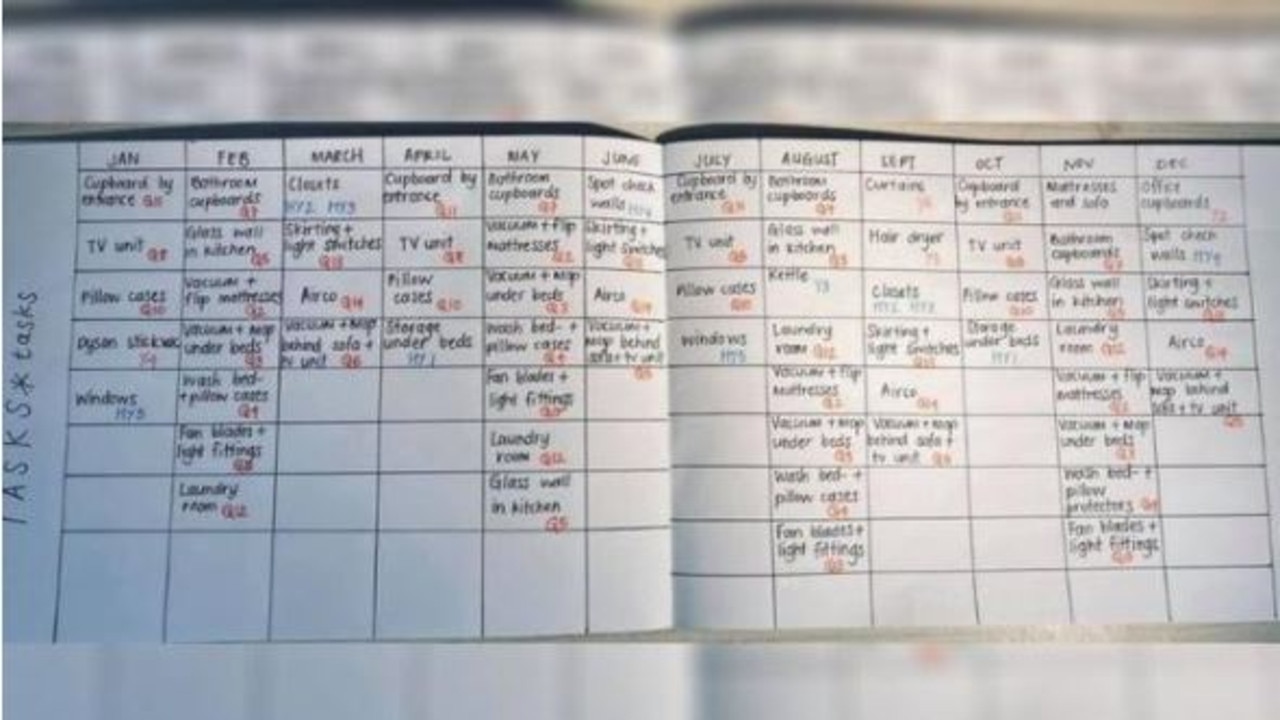 TASKS* tasks
JAN FEB MARCH APRIL MAY JUNE JULY AUGUST SEPT OCT NOV DEC
Cupboard by
entrance Q11
Bathroom
cupboards Q7
Closets
HY2 HY3
Cupboard by
entrance Q11
Bathroom
cupboards Q7
Spot check
walls HY4
Cupboard by
entrance Q11
Bathroom
cupboards Q7
Curtains
Cupboard
by entrance Q11
Mattresses
and sofa
Office
cupboards Y2
TV unit Q8
Glass wall
in kitchen Q5
Skirting +
light switches
Q13
TV unit
Q8
Vacuum + flip
mattresses Q2
Skirting +
light switches
TV unit Q8
Glass wall
in kitchen Q5
Hair dryer
TV unit Q8
Bathroom
cupboards Q7
Spot check
walls HY4
Pillow cases
Q10
Vacuum +
flip mattresses
Q2
Airco Q14
Pillow
cases Q10
Vacuum + mop
under beds Q3
Airco Q14
Pillow cases
Q10
Kettle Y3
Closets
HY2 HY3
Pillow cases
Q10
Glass wall
in kitchen Q5
Skirting +
light switches
Dyson stickvac
Vacuum + mop
under beds Q3
Vacuum + mop
behind sofa +
tv unit Q6
Storage
under beds
HY1
Wash bed- +
pillow cases Q4
Vacuum +
mop behind
sofa + tv unit
Q6
Windows
HY5
Laundry
room Q12
Skirting +
light switches
Storage
under beds
HY1
Laundry
room Q12
Airco Q14
Windows
HY5
Wash bed-
+ pillow cases
Q4
Fan blades +
light fittings
Vacuum + flip
mattresses
Q2
Airco Q14
Vacuum + flip
mattresses
Q2
Vacuum +
mop behind
sofa + tv unit
Q6
Fan blades +
light fittings
Laundry
room Q12
Vacuum + mop
under beds
Q3
Vacuum + mop
behind sofa +
tv unit Q6
Vacuum + mop
under beds
Q3
Laundry
room Q12
Glass wall
in kitchen
Q5
Wash bed- +
pillow cases
Q4
Wash bed- +
pillow
protectors Q4
Fan blades +
light fittings
Fan blades +
light fittings